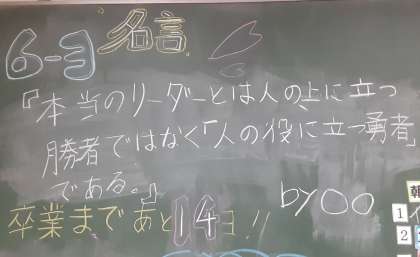 6-3 名言
『本当のリーダーとは人の上に立つ
勝者ではなく「人の役に立つ勇者」
である。』
by〇〇
卒業まであと14日!!
1
2